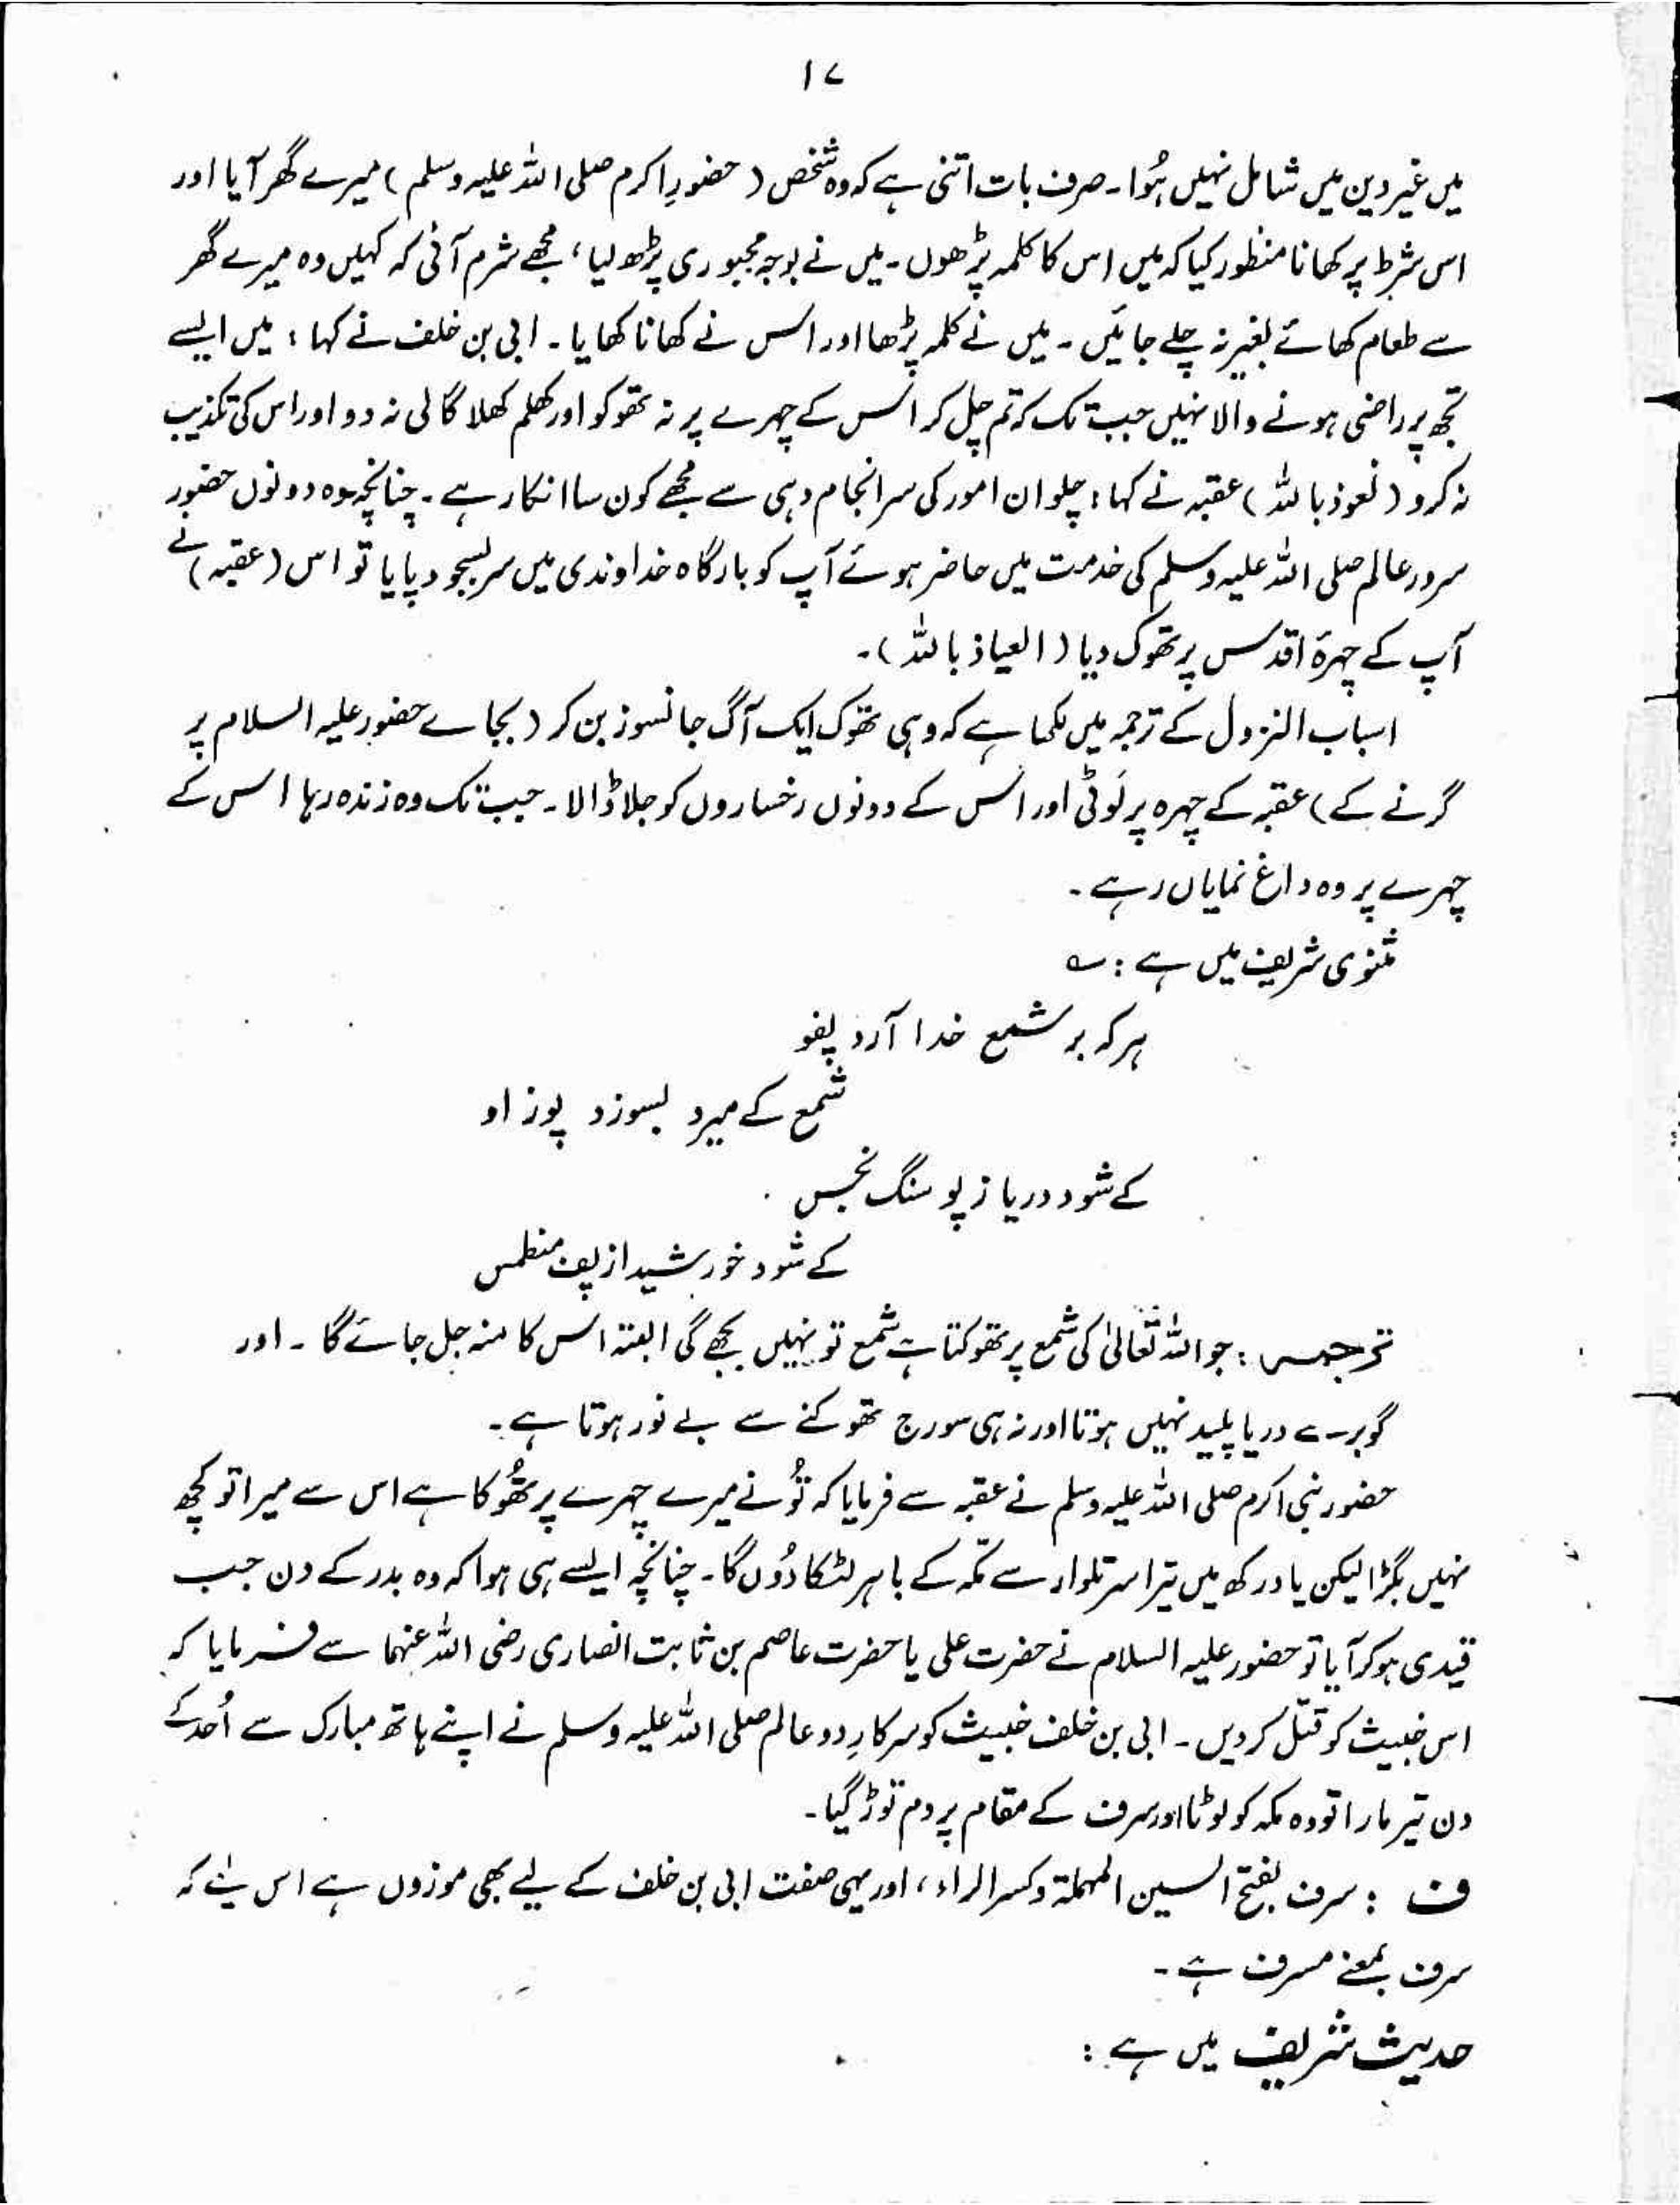 ۱۷
میں غیر دین میں شامل نہیں ہُوا ۔ صرف بات اتنی ہے کہ وہ شخص ( حضورِ اکرم صلی اللہ علیہ وسلم ) میرے گھر آیا اور
اس شرط پر کھانا منظور کیا کہ میں اس کا کلمہ پڑھوں ۔ میں نے بوجہ مجبوری پڑھ لیا ، مجھے شرم آئی کہ کہیں وہ میرے گھر
سے طعام کھائے بغیر نہ چلے جائیں ۔ میں نے کلمہ پڑھا اور اس نے کھانا کھایا ۔ ابی بن خلف نے کہا : میں ایسے
تجھ پر راضی ہونے والا نہیں جب تک کہ تم چل کر اس کے چہرے پر نہ تھوکو اور کھلم کھلا گالی نہ دو اور اس کی تکذیب
نہ کرو ( نعوذ باللہ ) عقبہ نے کہا : چلو ان امور کی سرانجام دہی سے مجھے کون سا انکار ہے ۔ چنانچہ وہ دونوں حضور
سرور عالم صلی اللہ علیہ وسلم کی خدمت میں حاضر ہوئے آپ کو بارگاہ خداوندی میں سربسجود پایا تو اس ( عقبہ ) نے
آپ کے چہرۂ اقدس پر تھوک دیا ( العیاذ باللہ ) ۔
اسباب النزول کے ترجمہ میں لکھا ہے کہ وہی تھوک ایک آگ جانسوز بن کر ( بجاے حضور علیہ السلام پر
گرنے کے ) عقبہ کے چہرہ پر لَوٹی اور اس کے دونوں رخساروں کو جلا ڈالا ۔ جب تک وہ زندہ رہا اس کے
چہرے پر وہ داغ نمایاں رہے ۔
مثنوی شریف میں ہے : ؎
ہر کہ بر شمع خدا آرد پفو
شمع کے میرد بسوزد پوز او
کے شود دریا ز پو سنگ نجس
کے شود خورشید از پف منطمس
ترجمہ : جو اللہ تعالیٰ کی شمع پر تھوکتا ہے شمع تو نہیں بجھے گی البتہ اس کا منہ جل جائے گا ۔ اور
گوبر سے دریا پلید نہیں ہوتا اور نہ ہی سورج تھوکنے سے بے نور ہوتا ہے ۔
حضور نبی اکرم صلی اللہ علیہ وسلم نے عقبہ سے فرمایا کہ تُو نے میرے چہرے پر تھُوکا ہے اس سے میرا تو کچھ
نہیں بگڑا لیکن یاد رکھ میں تیرا سر تلوار سے مکّہ کے باہر لٹکا دُوں گا ۔ چنانچہ ایسے ہی ہوا کہ وہ بدر کے دن جب
قیدی ہو کر آیا تو حضور علیہ السلام نے حضرت علی یا حضرت عاصم بن ثابت انصاری رضی اللہ عنہما سے فرمایا کہ
اس خبیث کو قتل کر دیں ۔ ابی بن خلف خبیث کو سرکارِ دو عالم صلی اللہ علیہ وسلم نے اپنے ہاتھ مبارک سے اُحد کے
دن تیر مارا تو وہ مکہ کو لوٹا اور سرف کے مقام پر دم توڑ گیا ۔
ف : سرف بفتح السین المہملۃ وکسر الراء ، اور یہی صفت ابی بن خلف کے لیے بھی موزوں ہے اس لیے کہ
سرف بمعنے مسرف ہے ۔
حدیث شریف میں ہے :